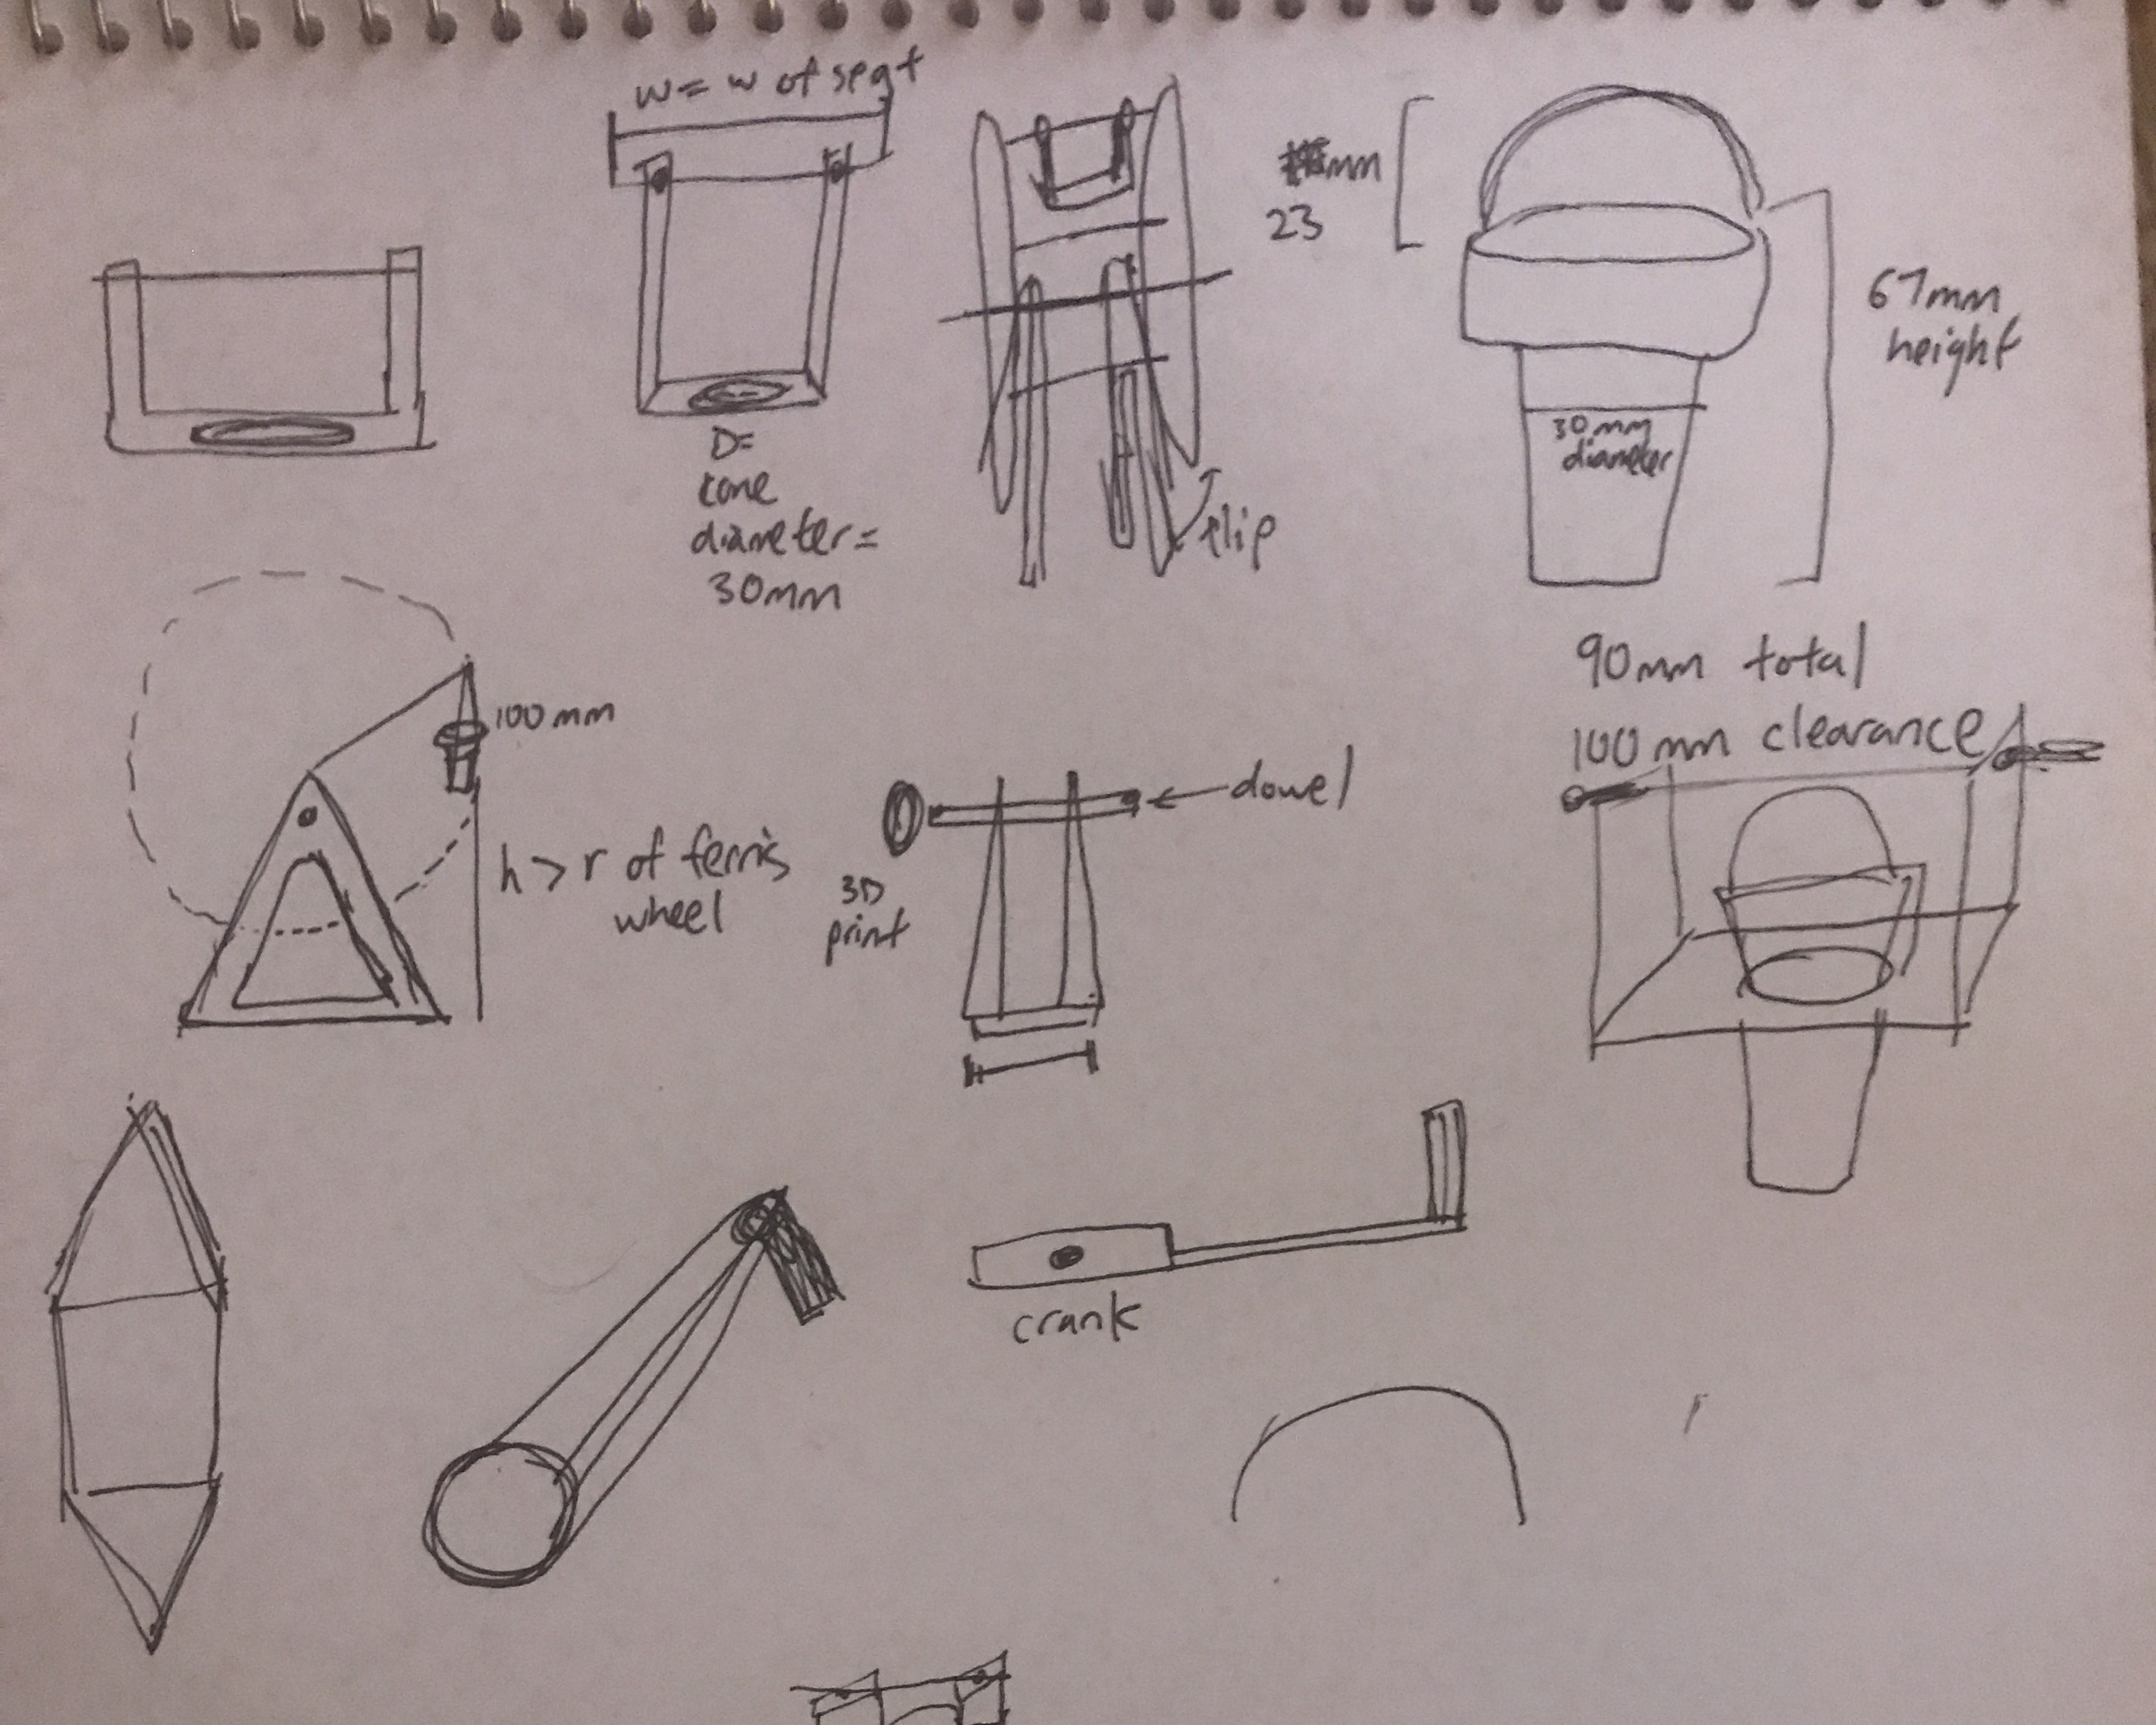 w = w of seat
D=
cone
diameter =
30mm
flip
mm
23
67mm
height
30mm
diameter
90mm total
100mm clearance
100mm
h > r of ferris
wheel
dowel
3D
print
crank